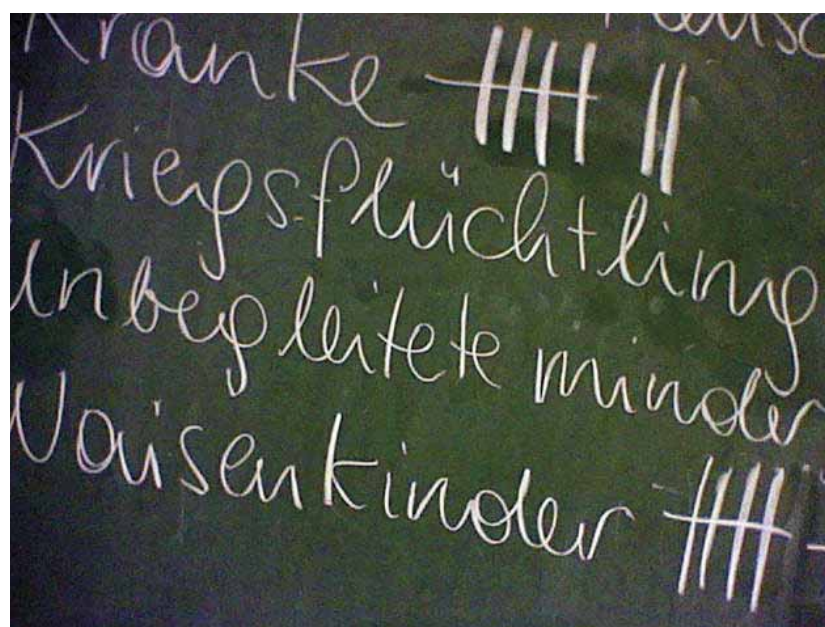 Kranke 卌 ||
Kriegsflüchtling
unbegleitete minder
Waisenkinder 卌